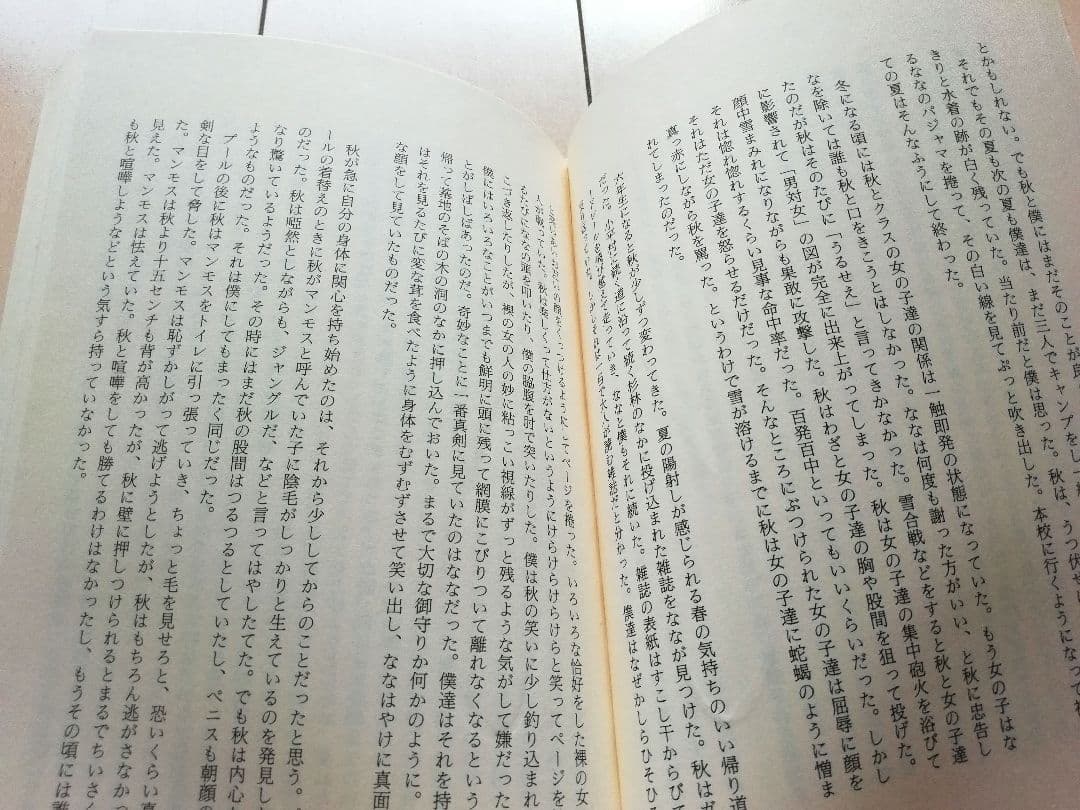 とかもしれない。でも秋と僕にはまだそのことが良
それでもその夏も次の夏も僕達は、まだ三人でキャンプをし
きりと水着の跡が白く残っていた。当たり前だと僕は思った。秋は、うつ伏せ
るななのパジャマを捲って、その白い線を見てぷっと吹き出した。本校に行くようにな
ての夏はそんなふうにして終わった。
冬になる頃には秋とクラスの女の子達の関係は一触即発の状態になっていた。もう女の子はな
なを除いては誰も秋と口をきこうとはしなかった。ななは何度も謝った方がいい、と忠告し
たのだが秋はそのたびに「うるせえ」と言ってきかなかった。雪合戦などをすると秋と女の子達
に影響されて「男対女」の図が完全に出来上がってしまった。秋は女の子達の集中砲火を浴びて
顔中雪まみれになりながらも果敢に攻撃した。秋はわざと女の子達の胸や股間を狙って投げた。
それは惚れ惚れするくらい見事な命中率だった。百発百中といってもいいくらいだった。しかし
それはただ女の子達を怒らせるだけだった。そんなところにぶつけられた女の子達は屈辱に顔を
真っ赤にしながら秋を罵った。というわけで雪が溶けるまでに秋は女の子達に蛇蝎のように憎ま
れてしまったのだった。
六年生になると秋が少しずつ変わってきた。夏の陽射しが感じられる春の気持ちのいい帰り道
だった。小学校に続く道に沿って続く杉林のなかに投げ込まれた雑誌をななが見つけた。秋はガ
ななと僕もそれに続いた。雑誌の表紙はすこし干からびて
分かった。僕達はなぜかしらひそひ
てページを捲った。いろいろな恰好をした裸の女
人が載っていた。秋は楽しくって仕方がないというようにけらけらけらけらと笑ってページを
もたびにななの頭を叩いたり、僕の脇腹を肘で突いたりした。僕は秋の笑いに少し釣り込まれ
こづき返したりしたが、裸の女の人の妙に粘っこい視線がずっと残るような気がして嫌だった
僕にはいろいろなことがいつまでも鮮明に頭に残って網膜にこびりついて離れなくなるという
とがしばしばあったのだ。奇妙なことに一番真剣に見ていたのはななだった。僕達はそれを持
帰って墓地のそばの木の洞のなかに押し込んでおいた。まるで大切な御守りか何かのように。
はそれを見るたびに変な茸を食べたように身体をむずむずさせて笑い出し、ななはやけに真面
な顔をして見ていたものだった。
秋が急に自分の身体に関心を持ち始めたのは、それから少ししてからのことだったと思う。
ールの着替えのときに秋がマンモスと呼んでいた子に陰毛がしっかりと生えているのを発見し
のだった。秋は唖然としながらも、ジャングルだ、などと言ってはやしたてた。でも秋は内心
なり驚いているようだった。その時にはまだ秋の股間はつるつるとしていたし、ペニスも朝顔の
ようなものだった。それは僕にしてもまったく同じだった。
プールの後に秋はマンモスをトイレに引っ張っていき、ちょっと毛を見せろと、恐いくらい真
剣な目をして脅した。マンモスは恥ずかしがって逃げようとしたが、秋はもちろん逃がさなかっ
た。マンモスは秋より十五センチも背が高かったが、秋に壁に押しつけられるとまるでちいさく
見えた。マンモスは怯えていた。秋と喧嘩をしても勝てるわけはなかったし、もうその頃には誰
も秋と喧嘩しようなどという気すら持っていなかった。